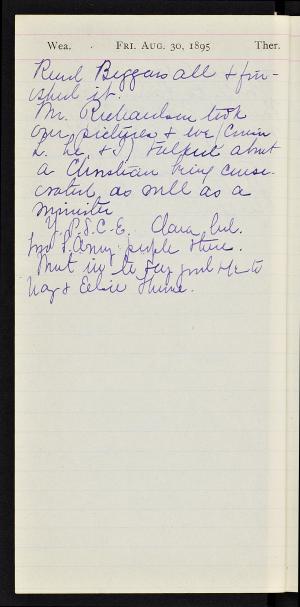 Wea. FRI. AUG. 30, 1895 Ther.
Read Beggars all & fin-
ished it.
Mr. Richardson took
our pictures & we (Cousin
L. & I) talked about
a Christian being conse-
crated, as well as a
minister
Y.P.S.C.E. Clara led.
people there.
to
& Elsie